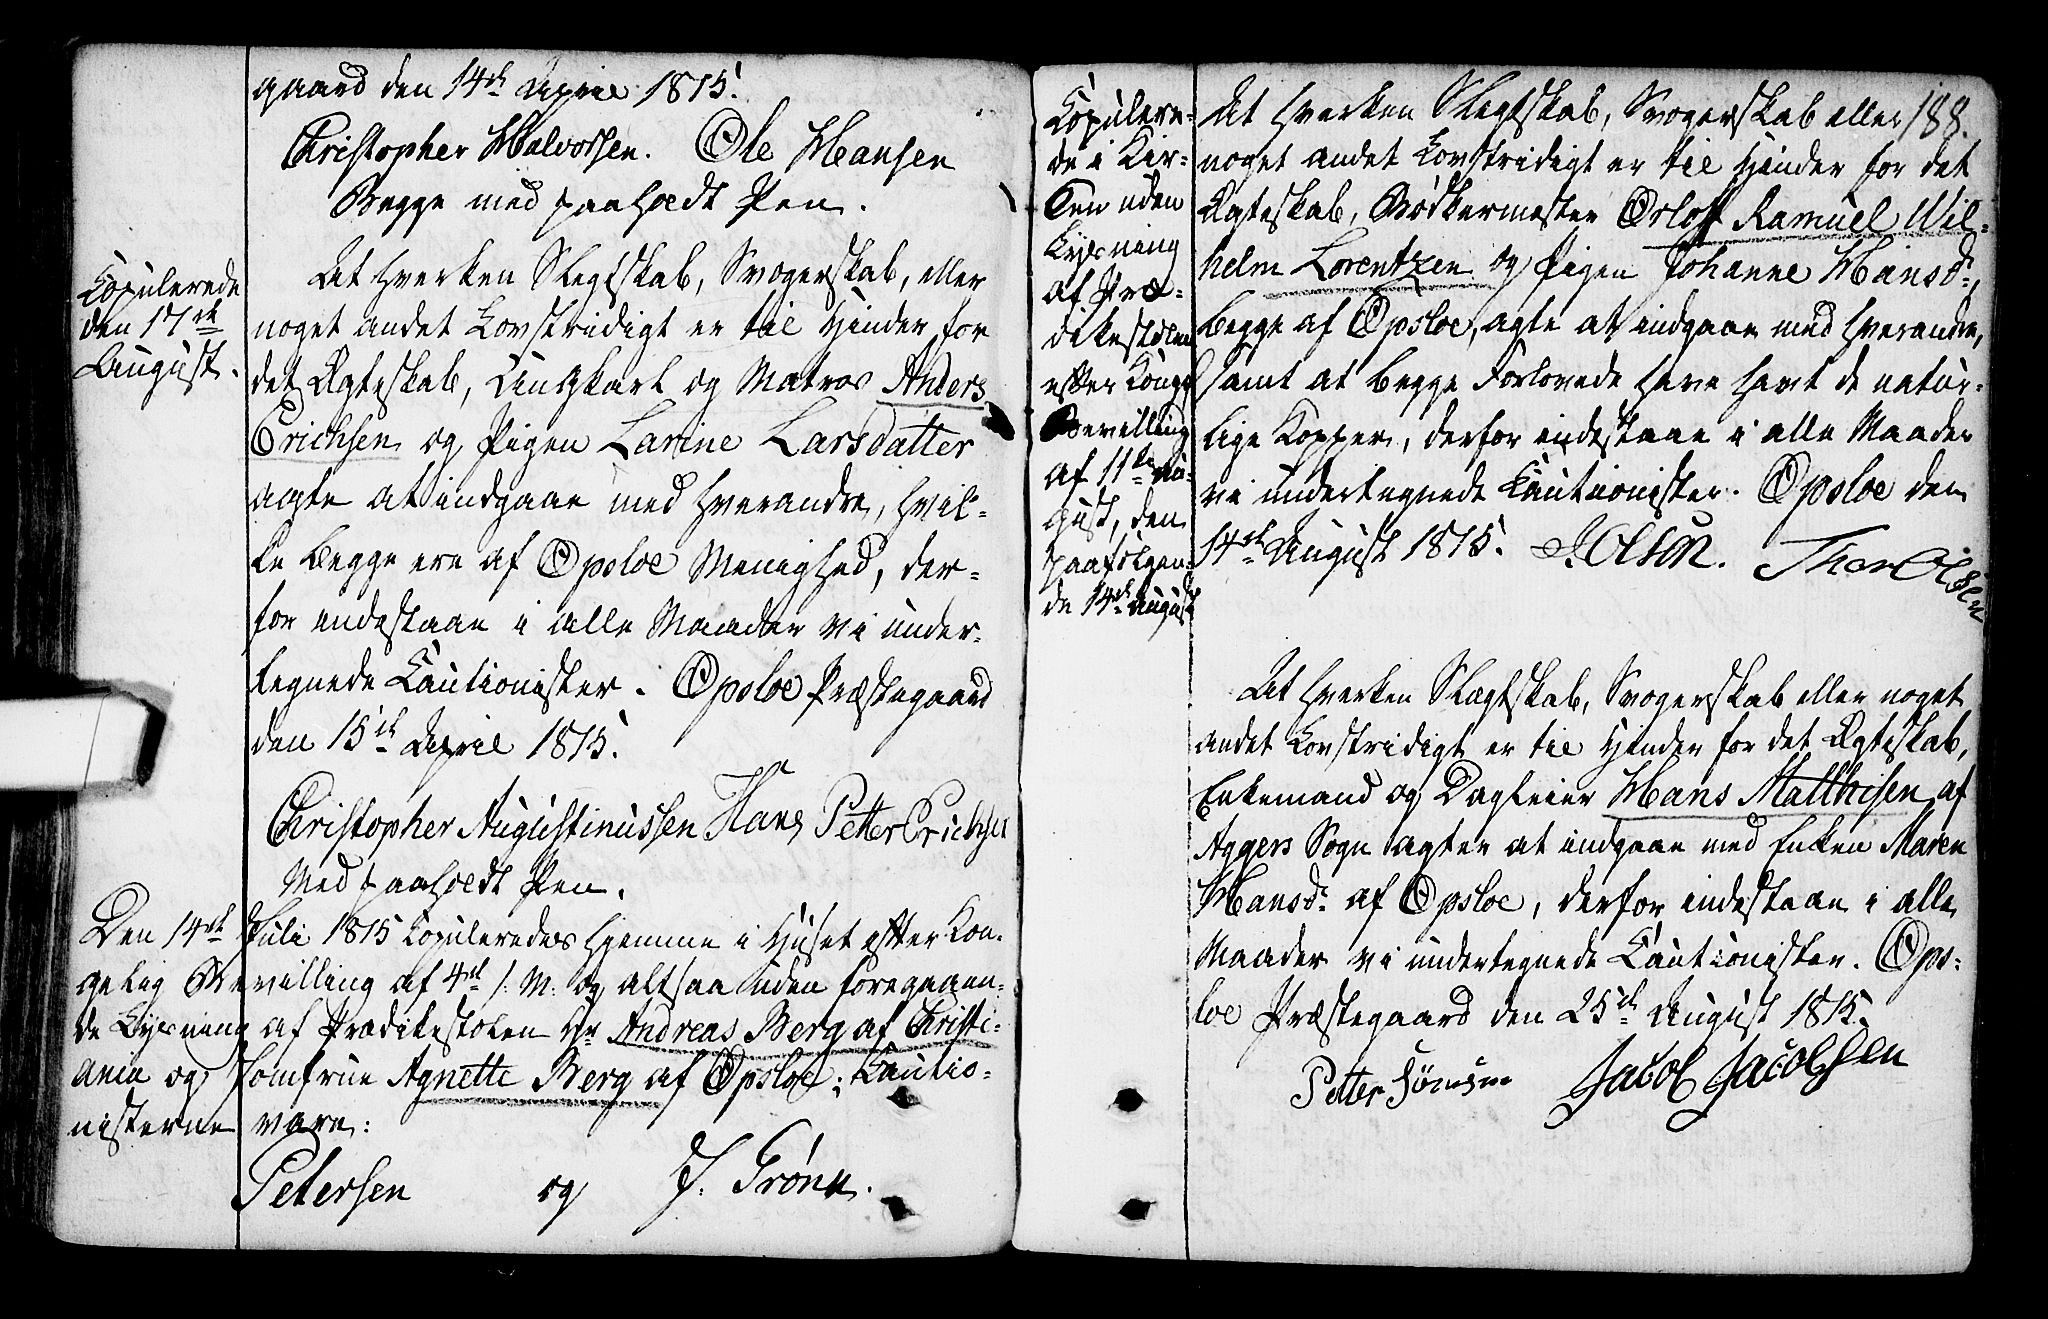 gaard den 14de April 1815.
Christopher Halvorsen. Ole Hansen
Begge med paaholdt Pen.
Copulerede
den 17de
August.
At hverken Slegtskab, Svogerskab, eller
noget andet Lovstridigt er til Hinder for
det Ægteskab, Ungkarl og Matros Anders
Erichsen og Pigen Larine Larsdatter
agte at indgaae med hverandre, hvil-
ke begge ere af Opsloe Menighed, der-
for indestaae i alle Maader vi under-
tegnede Cautionister. Opsloe Præstegaard
den 15de April 1815.
Christopher Augustinussen Hans Petter Erichsen
Med paaholdt Pen.
Den 14de Juli 1815 Copuleredes hjemme i Huset efter Kon-
gelig Bevilling af 4de s: M: og altsaa uden foregaaen-
de Lysning af Prædikestolen Hr Andreas Berg af Christi-
ania og Jomfrue Agnette Berg af Opsloe; Cautio-
nisterne vare:
Petersen og J. Grönn.
188.
Copulere-
de i Kir-
ken uden
Lysning
af Præ-
dikestolen
efter Kongl
Bevilling
af 11de Au-
gust, den
paafølgen-
de 14de August
At hverken Slegtskab, Svogerskab eller
noget andet Lovstridigt er til Hinder for det
Ægteskab, Bødkermester Orloff Ramuel Wil-
helm Lorentzen og Pigen Johanne Hansd:,
begge af Opsloe, agte at indgaae med hverandre,
samt at begge Forlovede have havt de natur-
lige Kopper, derfor indestaae i alle Maader
vi undertegnede Cautionister. Opsloe den
14de August 1815. J. Olsen. Thor Olsen
At hverken Slægtskab, Svogerskab eller noget
andet Lovstridigt er til Hinder for det Ægteskab,
Enkemand og Dagleier Hans Matthisen af
Aggers Sogn agter at indgaae med Enken Maren
Hansd: af Opsloe, derfor indestaae i alle
Maader vi undertegnede Cautionister. Ops-
loe Præstegaard den 25de August 1815.
Petter Jönsen Jacob Jacobsen